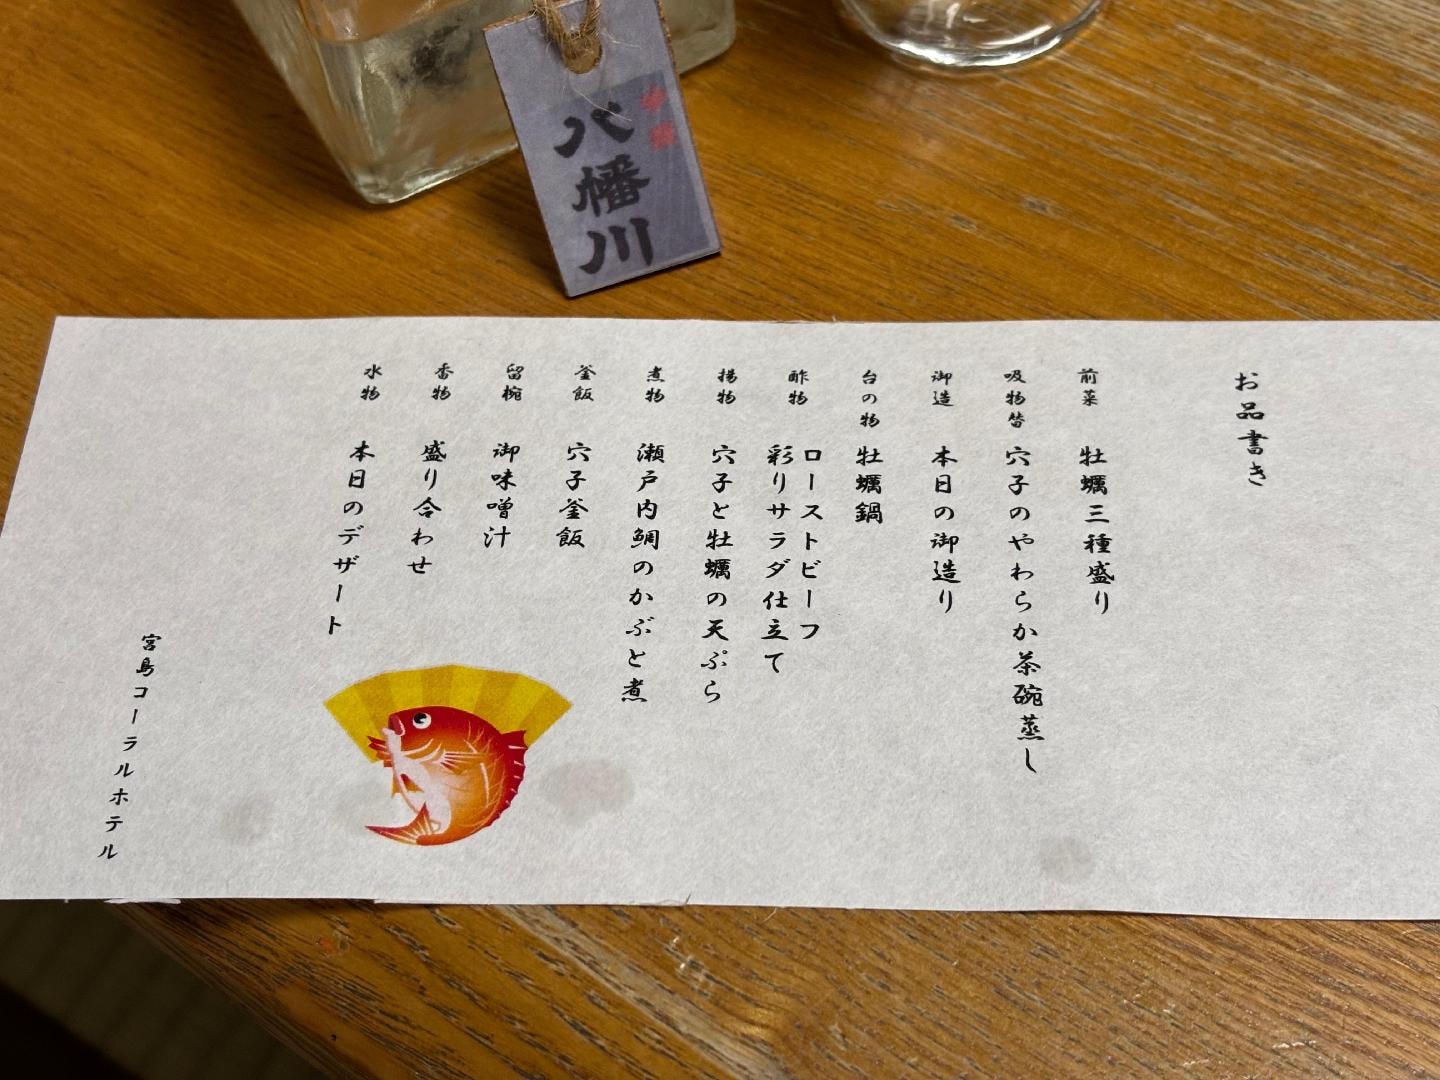 八幡川
お品書き
前菜 牡蠣三種盛り
吸物替 穴子のやわらか茶碗蒸し
御造 本日の御造り
台の物 牡蠣鍋
酢物 ローストビーフ
彩りサラダ仕立て
揚物 穴子と牡蠣の天ぷら
煮物 瀬戸内鯛のかぶと煮
釜飯 穴子釜飯
留椀 御味噌汁
香物 盛り合わせ
水物 本日のデザート
宮島コーラルホテル